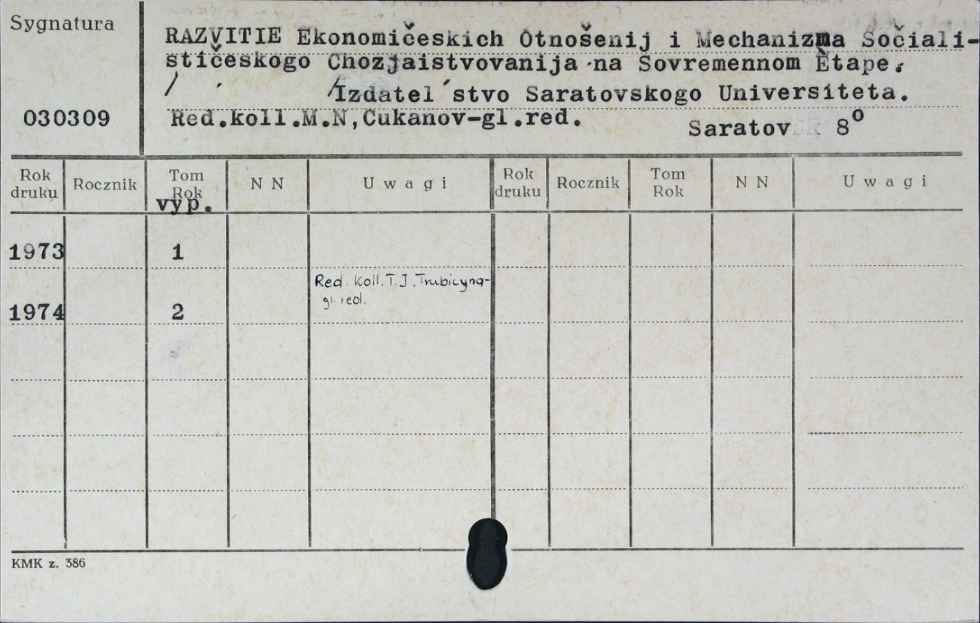 Sygnatura
030309
RAZVITIE Ekonomičeskich Otnošenij i Mechanizma Sociali-
stičeskogo Chozjaistvovanija na Sovremennom Ètape.
/ /Izdatel´stvo Saratovskogo Universiteta.
Red.koll.M.N,Cukanov-gl.red.
Saratov 8°
Rok druku Rocznik Tom Rok N N Uwagi Rok druku Rocznik Tom Rok N N Uwagi
vyp.
1973 1
Red. Koll. T. J. Trubicyna-
gl. red.
1974 2
KMK z. 386